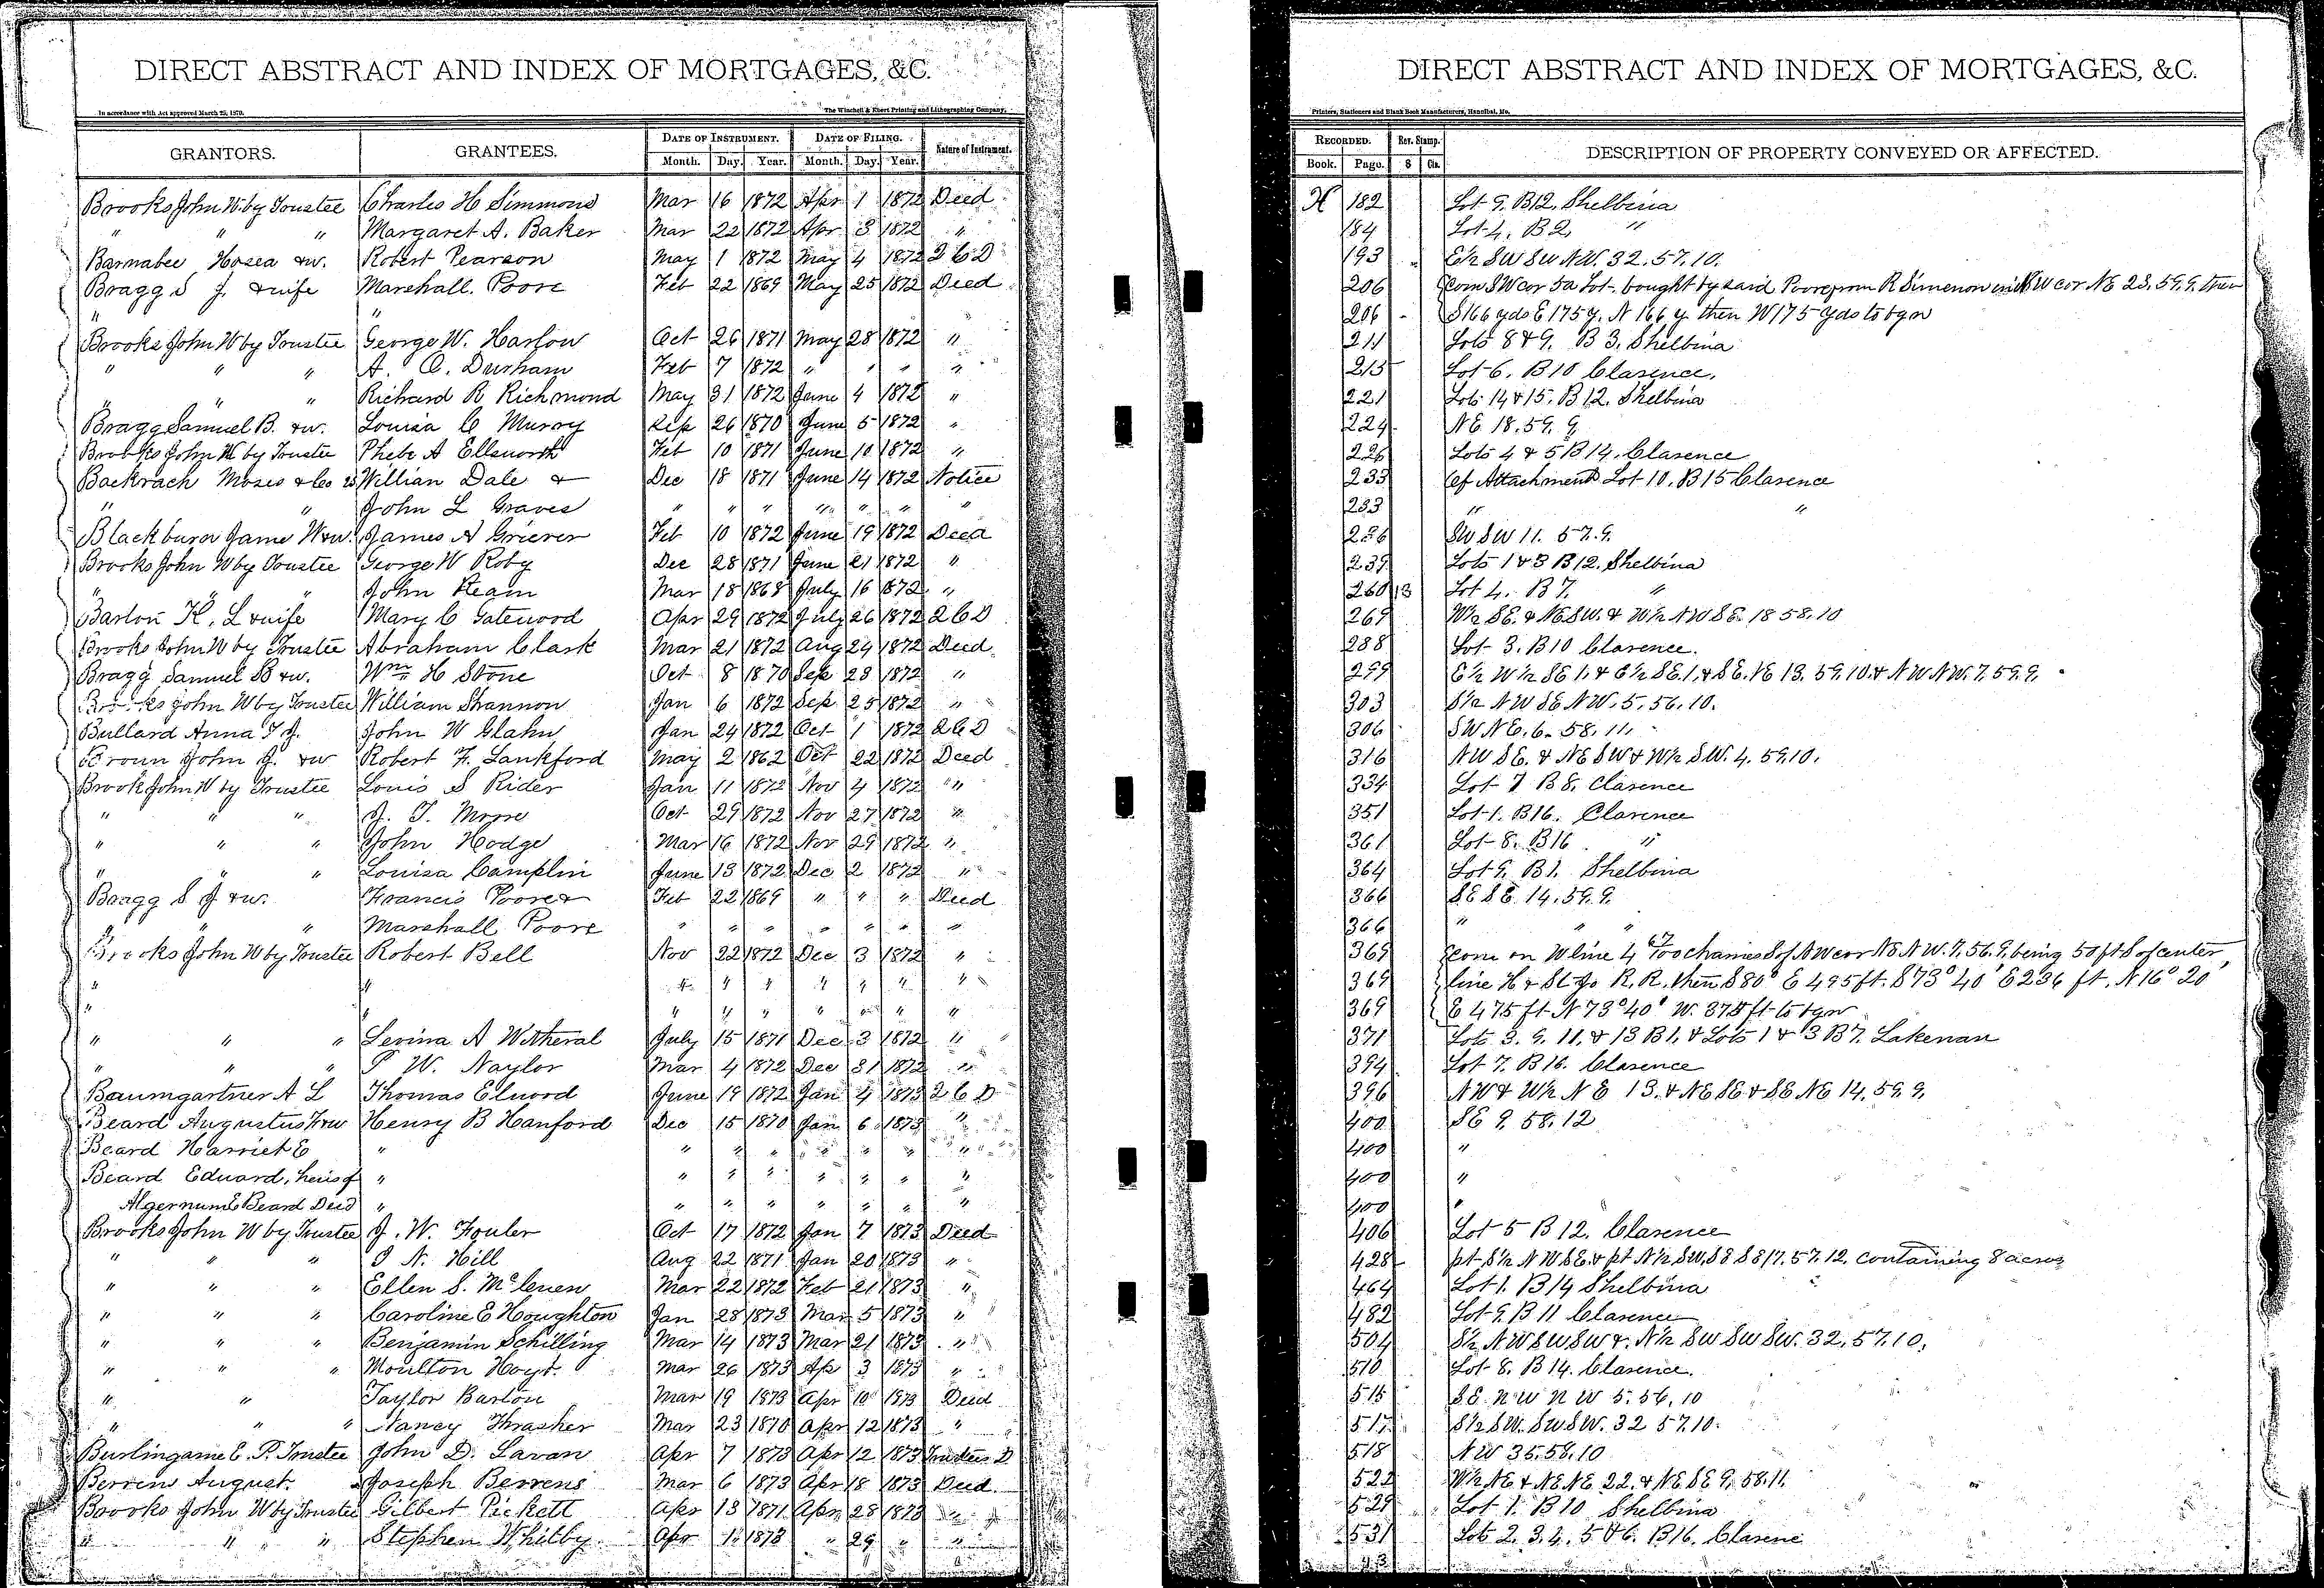 DIRECT ABSTRACT AND INDEX OF MORTGAGES, &C.
In accordance with Act approved March 25, 1870. The Winchell & Ebert Printing and Lithographing Company,
GRANTORS. GRANTEES. DATE OF INSTRUMENT. DATE OF FILING. Nature of Instrument.
Month. Day. Year. Month. Day. Year.
Brooks John W. by Trustee Charles H Simmons Mar 16 1872 Apr 1 1872 Deed
" " " Margaret A. Baker Mar 22 1872 Apr 3 1872 "
Barnabee Hosea & w. Robert Pearson May 1 1872 May 4 1872 2 C D
Bragg S J. & wife Marshall Poore Feb 22 1869 May 25 1872 Deed
" "
Brooks John W by Trustee George W. Harlow Oct 26 1871 May 28 1872 "
" " " A. C. Durham Feb 7 1872 " " " "
" " " Richard R Richmond May 31 1872 June 4 1872 "
Bragg Samuel B. & w. Louisa C Murry Sep 26 1870 June 5 1872 "
Brooks John W by Trustee Phebe A Ellsworth Feb 10 1871 June 10 1872 "
Backrach Moses & Co vs Willian Dale & Dec 18 1871 June 14 1872 Notice
" " John L Graves " " " " " " "
Blackburn Jame W & w. James A Griever Feb 10 1872 June 19 1872 Deed
Brooks John W by Trustee George W Roby Dec 28 1871 June 21 1872 "
" " " John Ream Mar 18 1868 July 16 1872 "
Barton K. L & wife Mary C Gatewood Apr 29 1872 July 26 1872 2 C D
Brooks John W by Trustee Abraham Clark Mar 21 1872 Aug 24 1872 Deed
Bragg Samuel B & w. Wm H Stone Oct 8 1870 Sep 23 1872 "
Brooks John W by Trustee William Shannon Jan 6 1872 Sep 25 1872 "
Bullard Anna T J. John W Glahn Jan 24 1872 Oct 1 1872 2 C D
Broun John J. & w Robert F. Lankford May 2 1862 Oct 22 1872 Deed
Brook John W by Trustee Louis S Rider Jan 11 1872 Nov 4 1872 "
" " " J. T. Moore Oct 29 1872 Nov 27 1872 "
" " " John Hodge Mar 16 1872 Nov 29 1872 "
" " " Louisa Camplin June 13 1872 Dec 2 1872 "
Bragg S J & w. Francis Poore & Feb 22 1869 " " " Deed
" " " Marshall Poore " " " " " " "
Brooks John W by Trustee Robert Bell Nov 22 1872 Dec 3 1872 "
" " " " " " " " "
" " " " " " " "
" " " Levina A Witheral July 15 1871 Dec 3 1872 "
" " " P W. Naylor Mar 4 1872 Dec 31 1872 "
Baumgartner A L Thomas Elword June 19 1872 Jan 4 1873 2 C D
Beard Augustus F & w Henry B Hanford Dec 15 1870 Jan 6 1873 "
Beard Harriet E " " " " " " " "
Beard Eduard, heirs of " " " " " " " "
Algernum E Beard Decd " " " " " " " "
Brooks John W by Trustee J. W. Fouler Oct 17 1872 Jan 7 1873 Deed
" " " I N. Hill Aug 22 1871 Jan 20 1873 "
" " " Ellen S. McLeuen Mar 22 1872 Feb 21 1873 "
" " " Caroline E Houghton Jan 28 1873 Mar 5 1873 "
" " " Benjamin Schilling Mar 14 1873 Mar 21 1873 "
" " " Moulton Hoyt Mar 26 1873 Apr 3 1873 "
" " Taylor Barton Mar 19 1873 Apr 10 1873 Deed
" " " Nancy Thrasher Mar 23 1870 Apr 12 1873 "
Burlingame E. P. Trustee John D. Lavan Apr 7 1873 Apr 12 1873 Trustees D
Berrens August. Joseph Berrens Mar 6 1873 Apr 18 1873 Deed
Brooks John W by Trustee Gilbert Pickett Apr 13 1871 Apr 28 1873 "
" " " Stephen Whitby Apr 1 1873 " 29 " "
DIRECT ABSTRACT AND INDEX OF MORTGAGES, &C.
Printers, Stationers and Blank Book Manufacturers, Hannibal, Mo.
RECORDED. Rev. Stamp. DESCRIPTION OF PROPERTY CONVEYED OR AFFECTED.
Book. Page. $ Cts.
H 182 Lot 9. B12. Shelbina
184 Lot 4. B 2. "
193 E½ SW SW NW. 32. 57. 10.
206 Com SW cor 5a Lot bought by said Poore from R Simenon in NW cor NE 23. 59. 9. then
206 S 166 yds E 175 y. N 166 y. then W 175 yds to bgn
211 Lots 8 & 9. B 3. Shelbina
213 Lot 6. B 10 Clarence.
221 Lots 14 & 15. B 12. Shelbina
224 NE 18. 59. 9
226 Lots 4 & 5 B 14. Clarence
233 of Attachment Lot 10. B 15 Clarence
233 " "
236 SW SW 11. 57. 9.
239 Lots 1 & 3 B 12. Shelbina
260 13 Lot 4. B 7. "
269 W½ SE. & NE SW. & W½ NW SE. 18 58. 10
288 Lot 3. B10 Clarence.
299 E½ W½ SE 1. & E½ SE. 1. & SE. NE 13. 59. 10. & NW NW. 7. 59. 9.
303 S½ NW SE NW. 5. 56. 10.
306 SW NE. 6. 58. 11.
316 NW SE. & NE SW & W½ SW. 4. 59. 10.
334 Lot 7 B 8. Clarence
351 Lot 1. B16. Clarence
361 Lot 8. B 16 "
364 Lot 9. B 1. Shelbina
366 SE SE 14. 59. 9.
366 " " "
369 Com on W line 4 67/100 chains S of NW cor NE NW. 7. 56. 9. being 50 ft S of center
369 line H & St Jo R. R. then S 80° E 495 ft. S 73° 40' E 236 ft. N 16° 20'
369 E 475 ft N 73° 40' W. 875 ft to bgn
371 Lots 3. 9. 11. & 13 B 1. & Lots 1 & 3 B 7. Lakenan
394 Lot 7. B 16. Clarence
396 NW & W½ NE 13. & NE SE & SE NE 14. 59. 9.
400 SE 9. 58. 12
400 "
400 "
400 "
406 Lot 5 B 12. Clarence
428 pt S½ NW SE. & pt N½ SW. SE SE 17. 57. 12. containing 8 acres
464 Lot 1. B 14 Shelbina
482 Lot 9. B 11 Clarence
504 S½ NW SW SW & N½ SW SW SW. 32. 57. 10.
510 Lot 8. B 14. Clarence.
515 SE NW NW 5. 56. 10
517 S½ SW. SW SW. 32 57. 10.
518 NW 35. 58. 10
522 W½ NE & NE NE 22. & NE SE 9. 58. 11.
529 Lot 1. B 10 Shelbina
531 Lots 2. 3. 4. 5 & 6. B 16. Clarenc